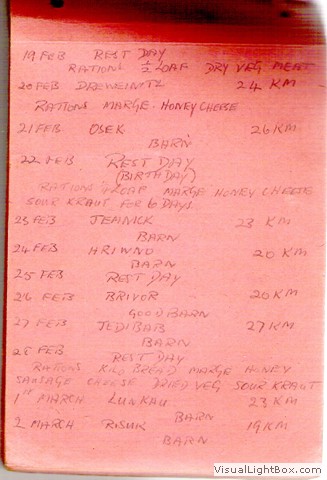 19 FEB REST DAY
RATIONS ½ LOAF DRY VEG MEAT
20 FEB DREWEINITZ 24 KM
RATIONS MARGE. HONEY CHEESE
21 FEB OSEK 26 KM
BARN
22 FEB REST DAY
(BIRTHDAY)
RATIONS LOAF MARGE HONEY CHEESE
SOUR KRAUT FOR 6 DAYS
23 FEB JEANICK 23 KM
BARN
24 FEB HRIWNO 20 KM
BARN
25 FEB REST DAY
26 FEB BRIVOR 20 KM
GOOD BARN
27 FEB JEDIBAB 27 KM
BARN
28 FEB REST DAY
RATIONS KILO BREAD MARGE HONEY
SAUSAGE CHEESE DRIED VEG SOUR KRAUT
1ST MARCH LUNKAU 23 KM
BARN
2 MARCH RISUK 19 KM
BARN
VisualLightBox.com